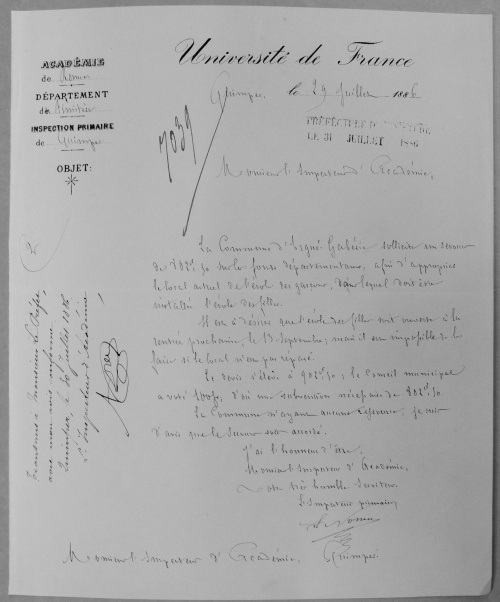 Université de France
ACADÉMIE
de Rennes
DÉPARTEMENT
de Finistère
INSPECTION PRIMAIRE
de Quimper
OBJET:
Quimper, le 29 Juillet 1886
PRÉFECTURE DU FINISTÈRE
LE 31 JUILLET 1886
7039
Monsieur l'Inspecteur d'Académie,
La Commune d'Ergué-Gabéric sollicite un secours
de 802f,50 sur les fonds départementaux, afin d'approprier
le local actuel de l'école des garçons, dans lequel doit être
installée l'école des filles.
Il est à désirer que l'école des filles soit ouverte à la
rentrée prochaine, le 13 Septembre; mais il est impossible de le
faire si le local n'est pas réparé.
Le devis s'élève à 902f,50; le Conseil municipal
a voté 100f, d'où une subvention nécessaire de 802f,50
La Commune n'ayant aucune ressource, je suis
d'avis que le secours soit accordé.
J'ai l'honneur d'être,
Monsieur l'Inspecteur d'Académie,
Votre très humble serviteur.
L'Inspecteur primaire,
Monsieur l'Inspecteur d'Académie, Quimper.
Transmis à Monsieur le Préfet
avec mon avis conforme
Quimper, le 30 juillet 1886
L'Inspecteur d'Académie